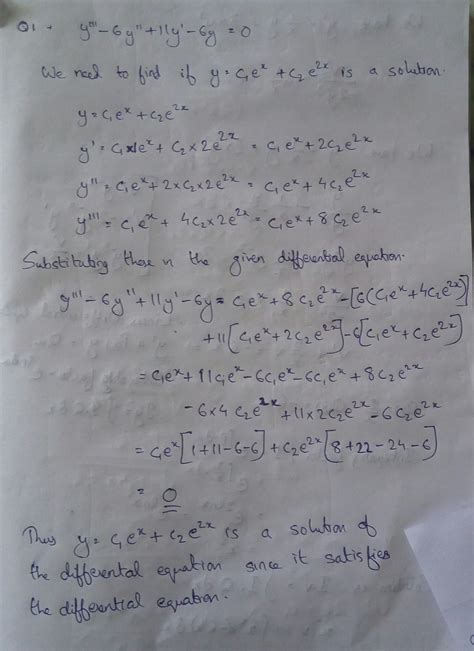 Q1. y''' - 6y'' + 11y' - 6y = 0
We need to find if y = c₁eˣ + c₂e²ˣ is a solution.
y = c₁eˣ + c₂e²ˣ
y' = c₁x1eˣ + c₂ x 2e²ˣ = c₁eˣ + 2c₂e²ˣ
y'' = c₁eˣ + 2 x c₂ x 2e²ˣ = c₁eˣ + 4c₂e²ˣ
y''' = c₁eˣ + 4c₂ x 2e²ˣ = c₁eˣ + 8c₂e²ˣ
Substituting these in the given differential equation.
y''' - 6y'' + 11y' - 6y = c₁eˣ + 8c₂e²ˣ - [6(c₁eˣ + 4c₂e²ˣ)]
+ 11[c₁eˣ + 2c₂e²ˣ] - 6[c₁eˣ + c₂e²ˣ]
= c₁eˣ + 11c₁eˣ - 6c₁eˣ - 6c₁eˣ + 8c₂e²ˣ
- 6x4 c₂e²ˣ + 11x2c₂e²ˣ - 6c₂e²ˣ
= c₁eˣ[1+11-6-6] + c₂e²ˣ[8+22-24-6]
= 0
Thus y = c₁eˣ + c₂e²ˣ is a solution of
the differental equation since it satisfies
the differential equation.